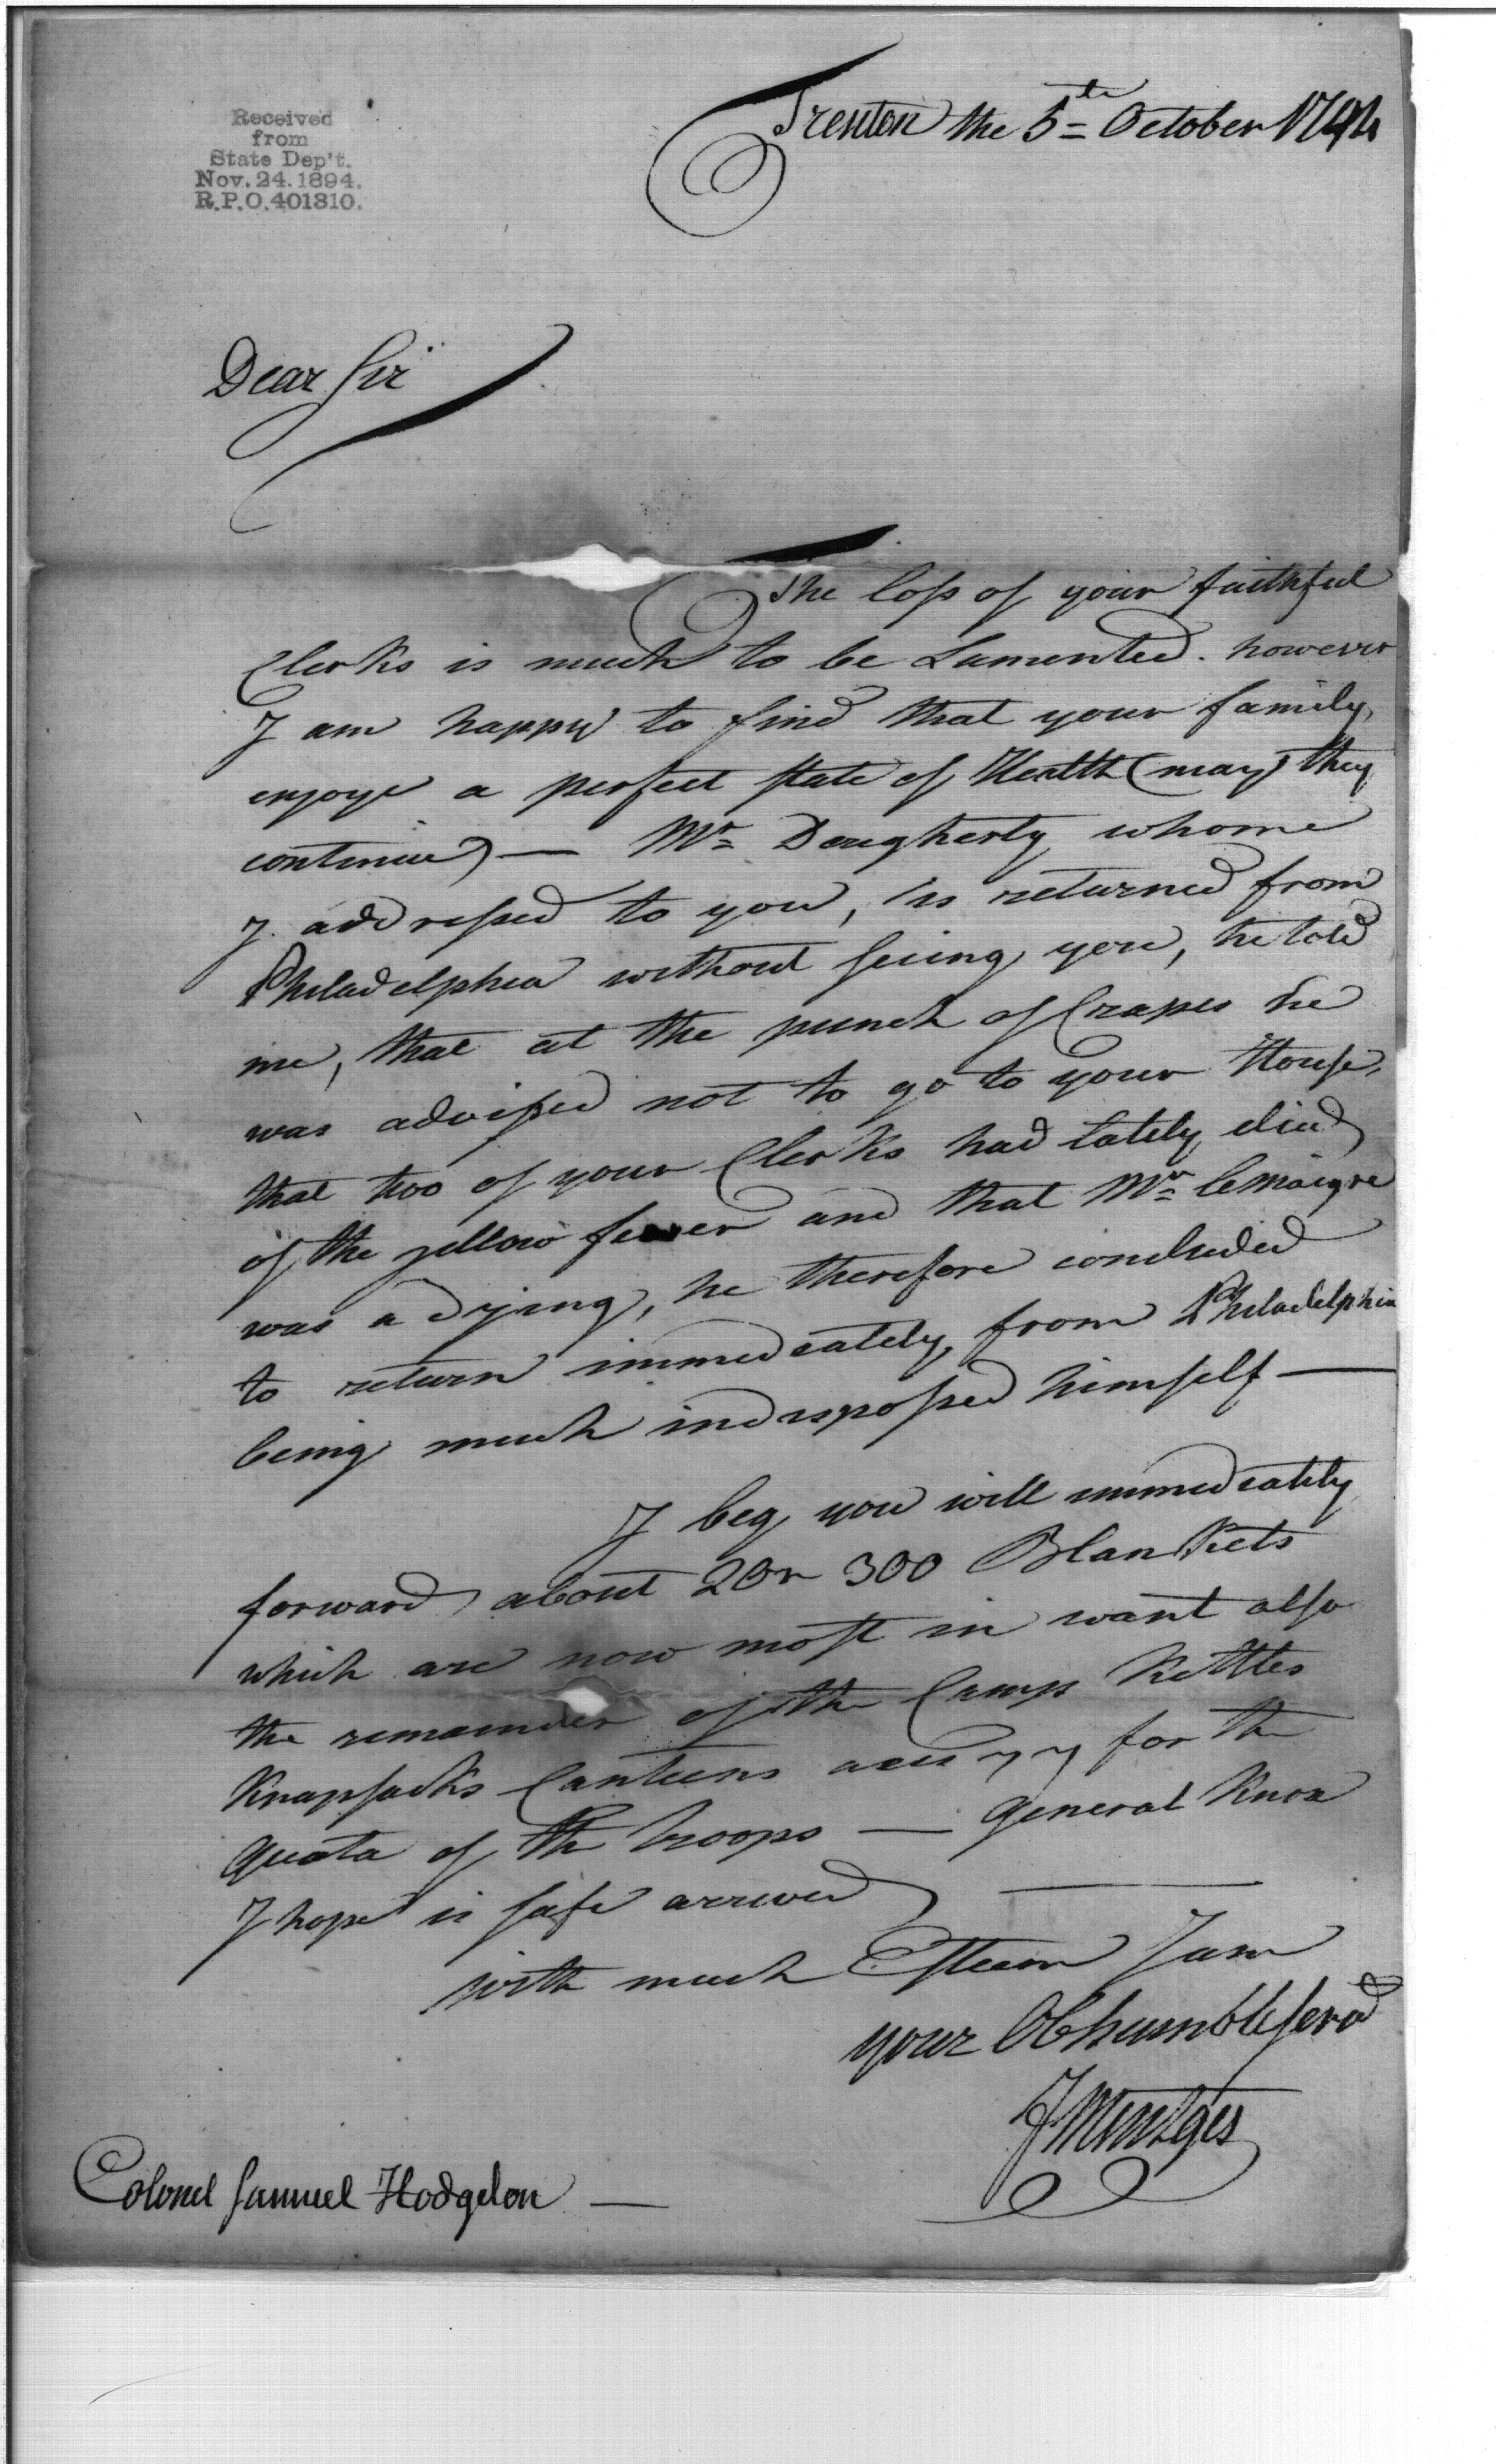 Received
from
State Dep't.
Nov. 24. 1894.
R.P.O. 401310.
Trenton the 5th October 1794
Dear Sir
The loss of your faithful
Clerks is much to be Lamented. however
I am happy to find that your family
enjoye a perfect State of Health (may they
continue) — Mr Daugherty whome
I addressed to you, is returned from
Philadelphia without seeing you, he told
me, that at the punch of Grapes he
was advised not to go to your House,
that two of your Clerks had lately died
of the yellow fever and that Mr lemaigre
was a dying, he therefore concluded
to return immediately from Philadelphia
being much indisposed himself —
I beg you will immediately
forward about 2 or 300 Blankets
which are now most in want also
the remainder of the Camp Kettles
Knapsacks Canteens for the
quota of the troops — General Knox
I hope is safe arrived —
with much Esteem I am
your Ob humble Serv
J Mentges
Colonel Samuel Hodgdon —